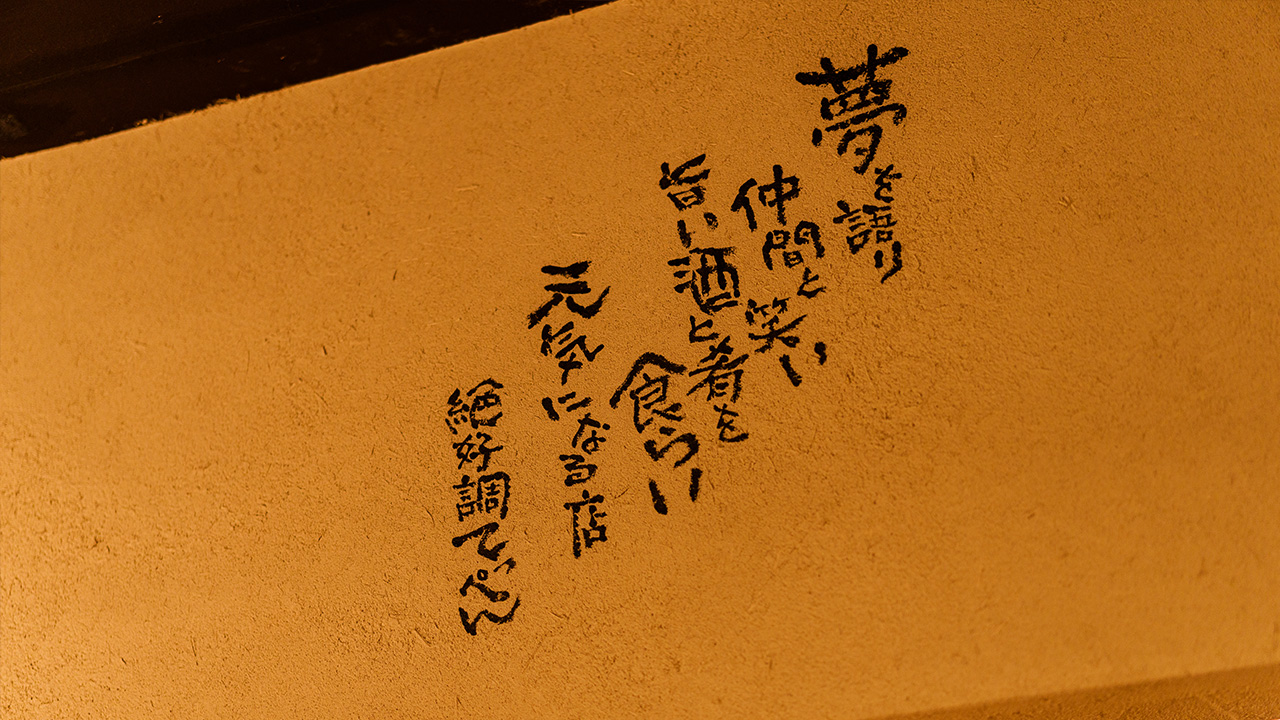 夢を語り
仲間と笑い
旨い酒と肴を
食らい
元気になる店
絶好調てっぺん